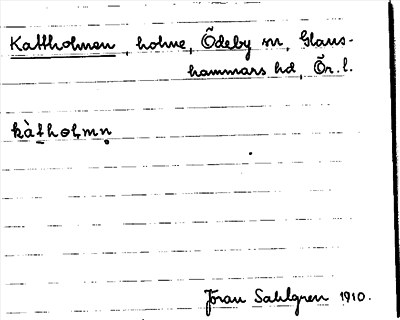 Kattholmen, holme, Ödeby sn, Glans-
hammars hd, Ör. l.
kàt̲hol̲mn̥
Jöran Sahlgren 1910.